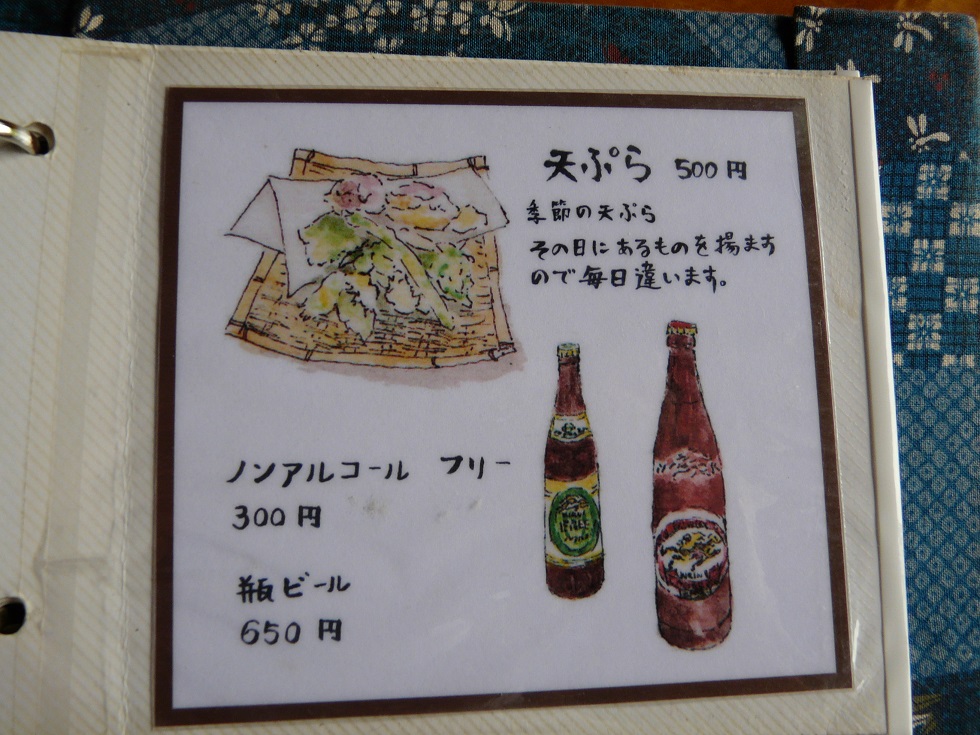 天ぷら 500円
季節の天ぷら
その日にあるものを揚ます
ので毎日違います。
ノンアルコール フリー
300円
瓶ビール
650円